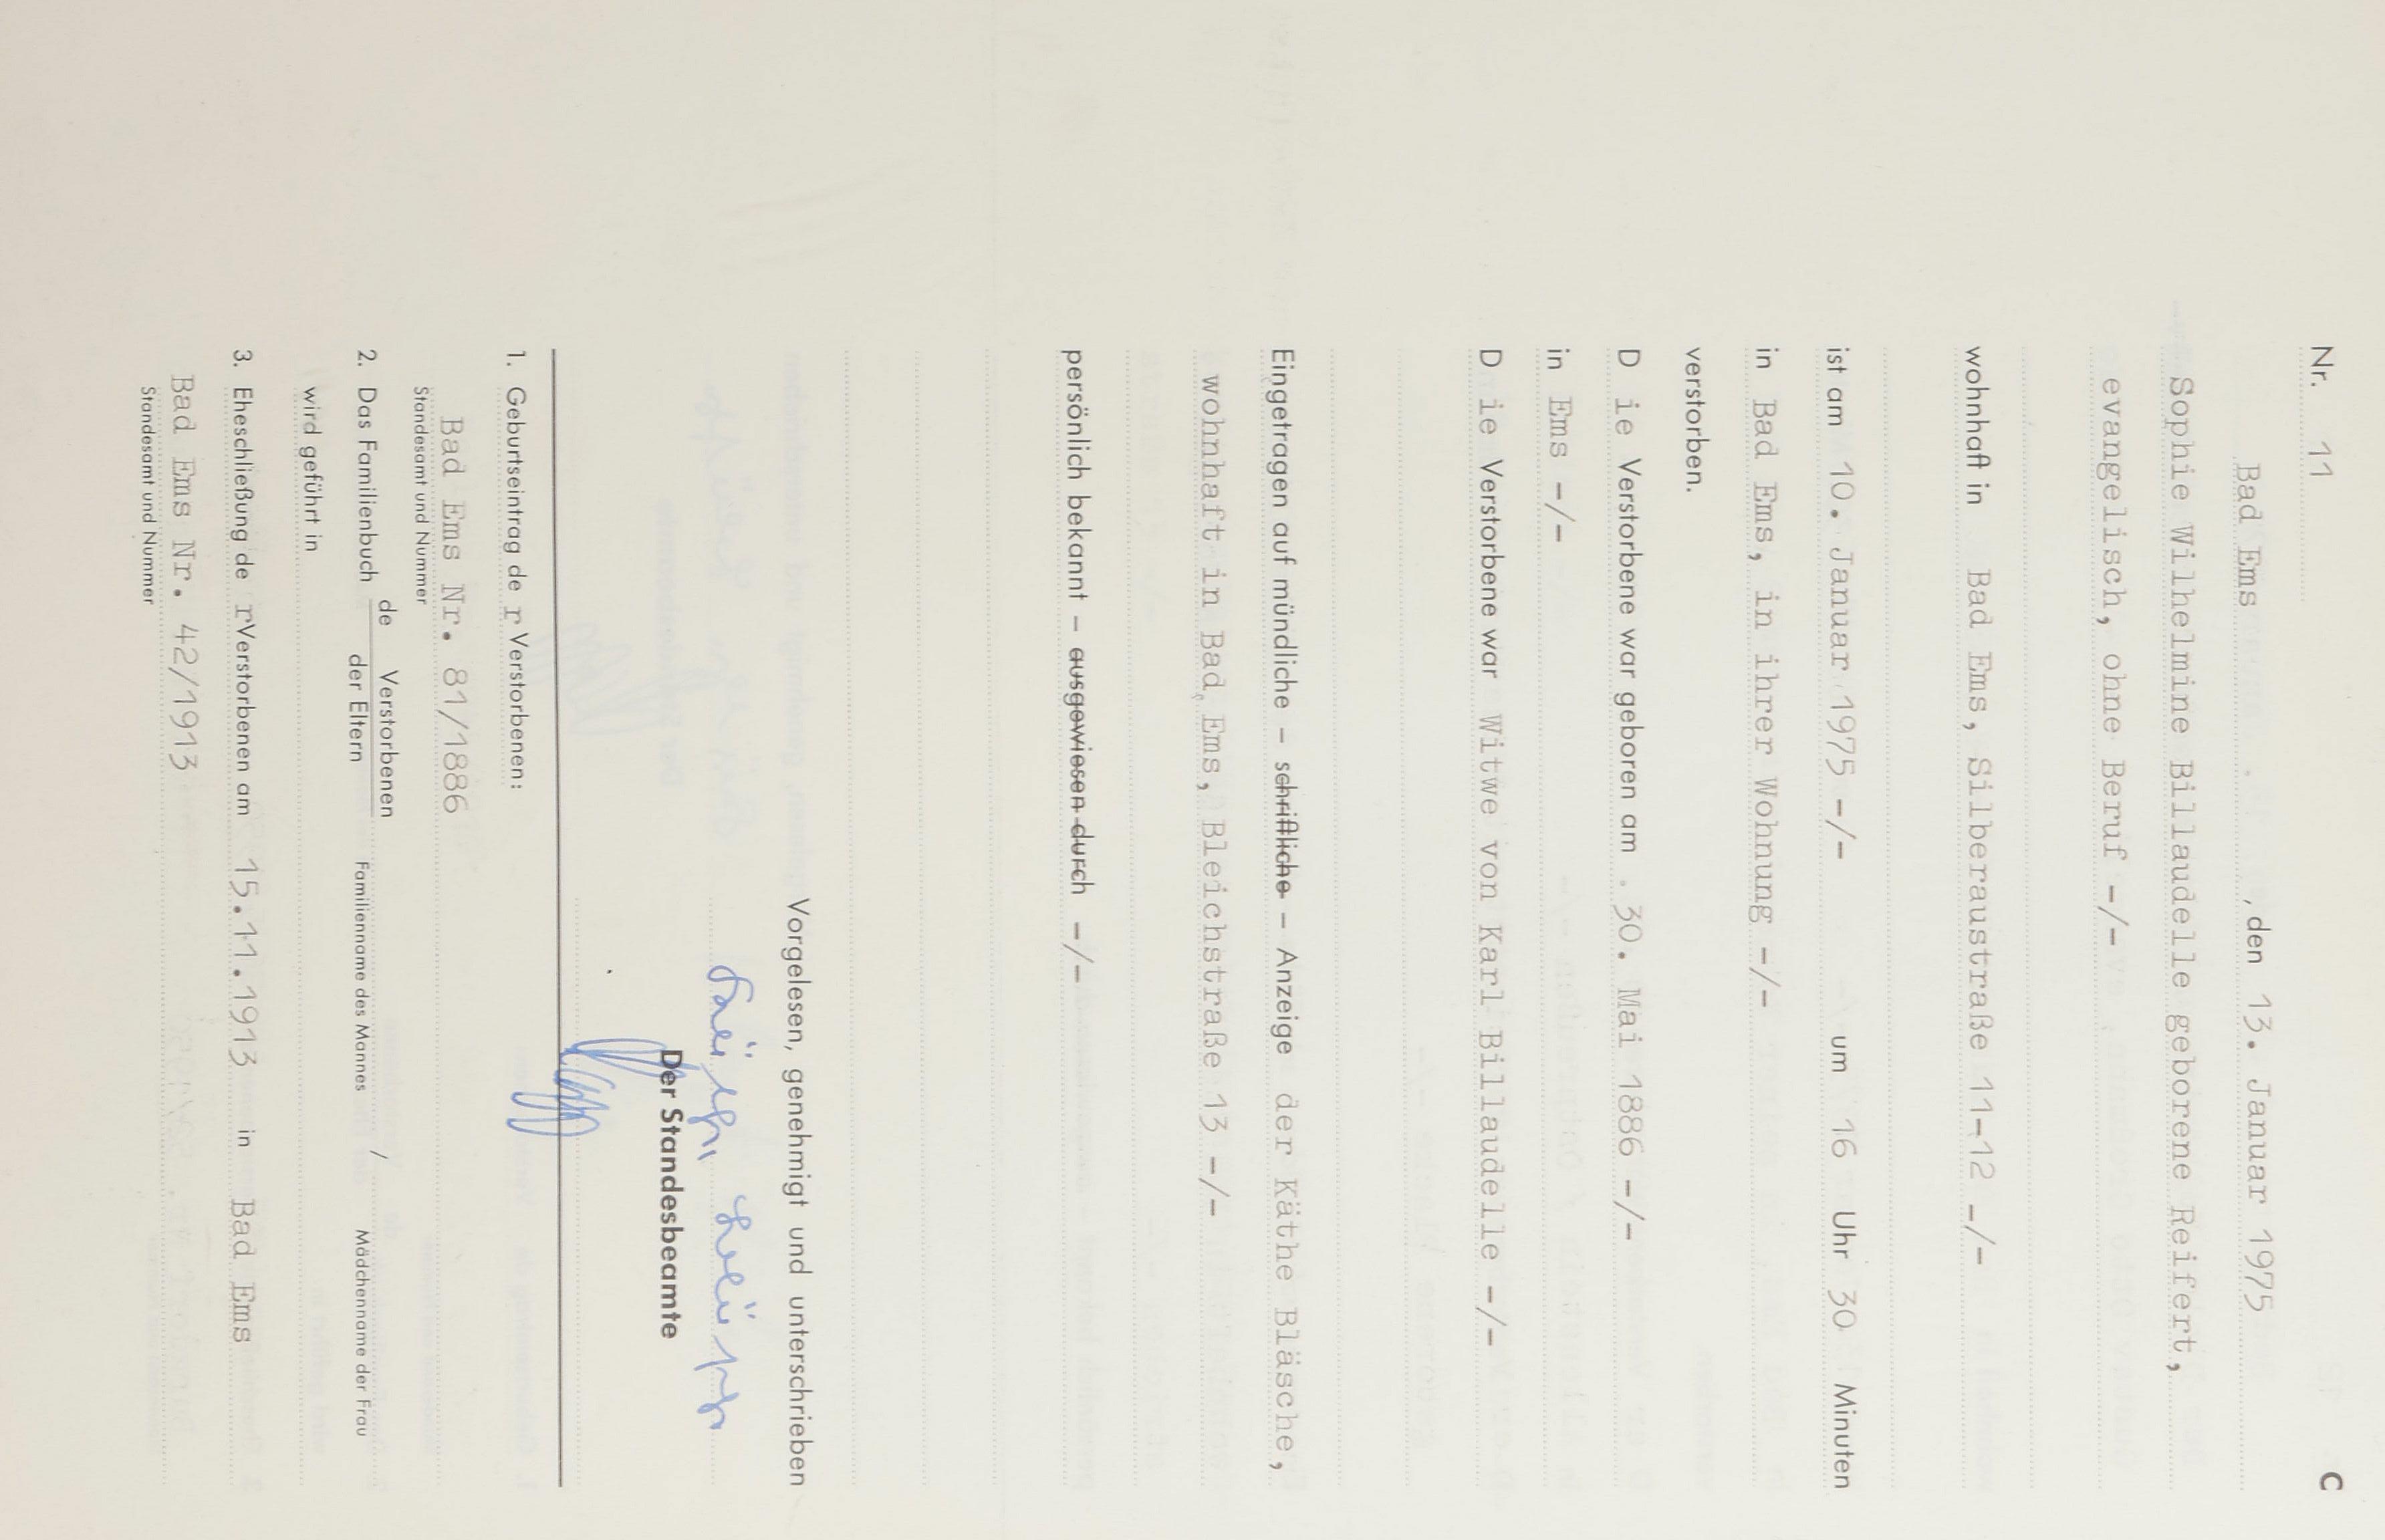 Nr. 11 C
Bad Ems , den 13. Januar 1975
Sophie Wilhelmine Billaudelle geborene Reifert,
evangelisch, ohne Beruf -/-
wohnhaft in Bad Ems, Silberaustraße 11-12 -/-
ist am 10. Januar 1975 -/- um 16 Uhr 30 Minuten
in Bad Ems, in ihrer Wohnung -/-
verstorben.
D ie Verstorbene war geboren am 30. Mai 1886 -/-
in Ems -/-
D ie Verstorbene war Witwe von Karl Billaudelle -/-
Eingetragen auf mündliche – schriftliche – Anzeige der Käthe Bläsche,
wohnhaft in Bad Ems, Bleichstraße 13 -/-
persönlich bekannt – ausgewiesen durch -/-
Vorgelesen, genehmigt und unterschrieben
Der Standesbeamte
1. Geburtseintrag de r Verstorbenen:
Bad Ems Nr. 81/1886
Standesamt und Nummer
2. Das Familienbuch de Verstorbenen / der Eltern
Familienname des Mannes / Mädchenname der Frau
wird geführt in
3. Eheschließung de r Verstorbenen am 15.11.1913 in Bad Ems
Bad Ems Nr. 42/1913
Standesamt und Nummer